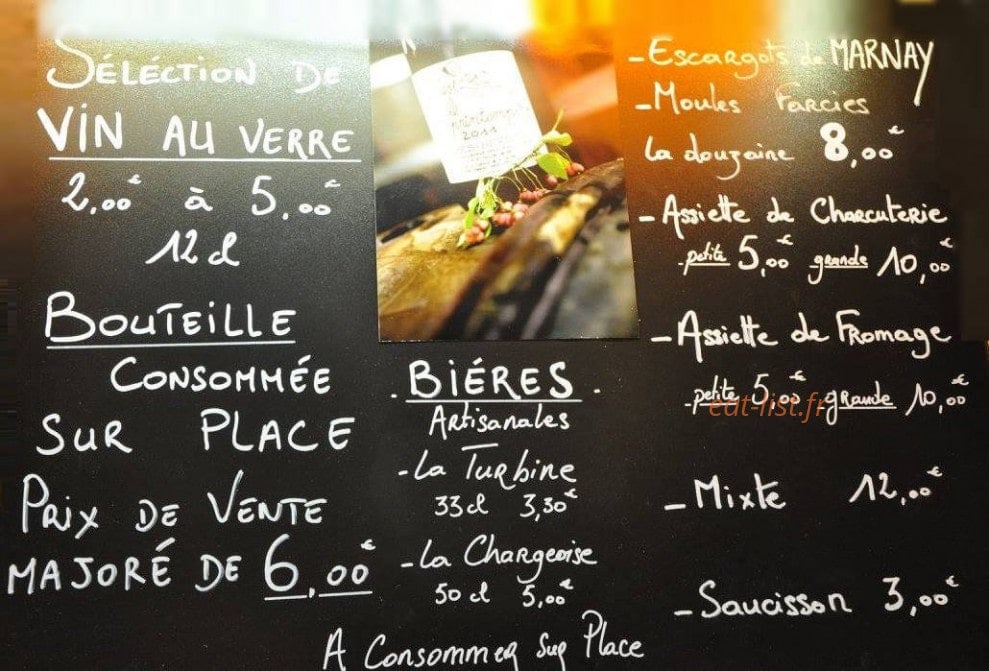 SÉLÉCTION DE
VIN AU VERRE
2,00€ à 5,00€
12cl
BOUTEILLE
CONSOMMÉE
SUR PLACE
PRIX DE VENTE
MAJORÉ DE 6,00€
printemps
2011
. BIÉRES .
Artisanales
- La Turbine
33cl 3,30€
- La Chargeoise
50cl 5,00€
A Consommer Sur Place
- Escargots de MARNAY
- Moules Farcies
la douzaine 8,00€
- Assiette de Charcuterie
- petite 5,00€ grande 10,00€
- Assiette de Fromage
- petite 5,00€ grande 10,00€
eat-list.fr
- Mixte 12,00€
- Saucisson 3,00€